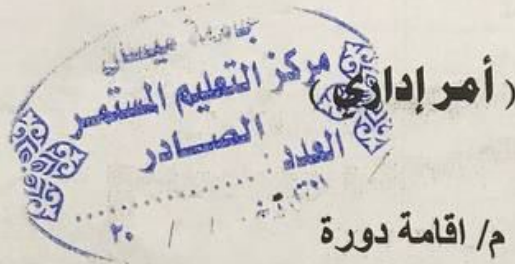 جامعة ميسان
مركز التعليم المستمر
الصادر
العدد :
التاريخ / / ٢٠
( أمر إداري )
م/ اقامة دورة